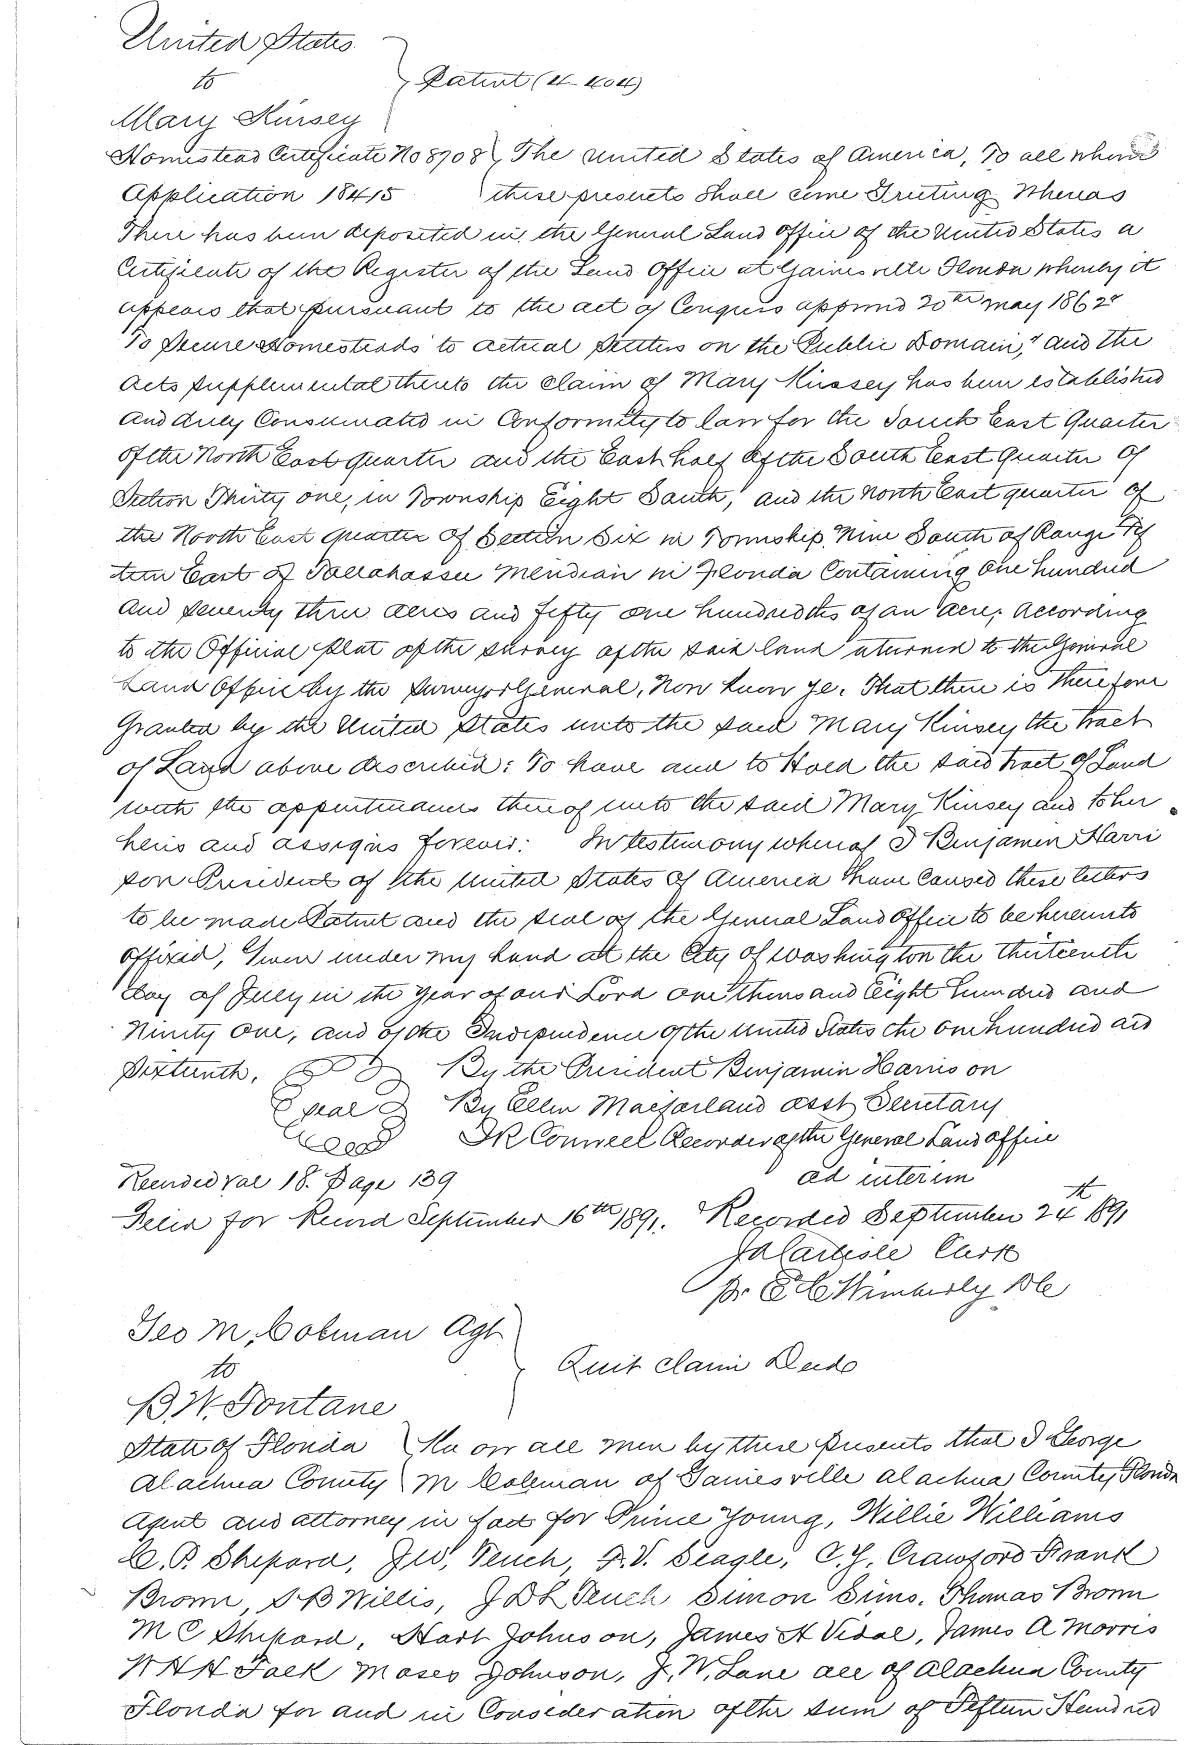 United States
to
Patent (4-404)
Mary Kinsey
Homestead Certificate No 8708 The United States of America, To all whom
Application 18415 these presents shall come Greeting Whereas
There has been deposited in the General Land Office of the United States a
Certificate of the Register of the Land Office at Gainesville Florida whereby it
appears that pursuant to the act of Congress approved 20th May 1862 "
To Secure Homesteads to actual Settlers on the Public Domain," and the
Acts supplemental thereto the Claim of Mary Kinsey has been established
and duly Consumated in Conformity to law for the South East Quarter
of the North East quarter and the East half of the South East Quarter of
Section Thirty one, in Township Eight South, and the North East quarter of
the North East quarter of Section Six in Township Nine South of Range Fif
teen East of Tallahassee Meridian in Florida Containing One hundred
and seventy three acres and fifty one hundredths of an acre, according
to the Official plat of the survey of the said land returned to the General
Land Office by the Surveyor General, Now know ye, That there is therefore
Granted by the United States unto the said Mary Kinsey the tract
of Land above described: To have and to Hold the said tract of Land
with the appurtenances thereof unto the said Mary Kinsey and to her
heirs and assigns forever: In testimony whereof I Benjamin Harri
son President of the United States of America have caused these letters
to be made Patent and the seal of the General Land Office to be hereunto
affixed, Given under my hand at the City of Washington the thirteenth
day of July in the Year of our Lord one thousand Eight hundred and
Ninety One, and of the Independence of the United States the one hundred and
Sixteenth, By the President Benjamin Harrison
Seal By Ellen Macfarland asst Secretary
I R Conwell Recorder of the General Land office
Recorded Vol 18. Page 139 ad interim
Filed for Record September 16th 1891. Recorded September 24th 1891
J A Carlisle Clerk
pr. E C Wimberly DC
Geo M, Colman Agt
to
Quit Claim Deed
B. W. Fontane
State of Florida Know all men by these presents that I George
Alachua County M Coleman of Gainesville Alachua County Florida
Agent and attorney in fact for Prince Young, Willie Williams
C. P. Shepard, J W, Tench, F. V. Seagle, C. Y. Crawford Frank
Brown, S B Willis, J D L Tench Simon Sims, Thomas Brown
M C Shepard, Hart Johnson, James H Vidal, James A Morris
W H H Faek Moses Johnson, J, W, Lane all of Alachua County
Florida for and in Consideration of the sum of Fifteen Hundred